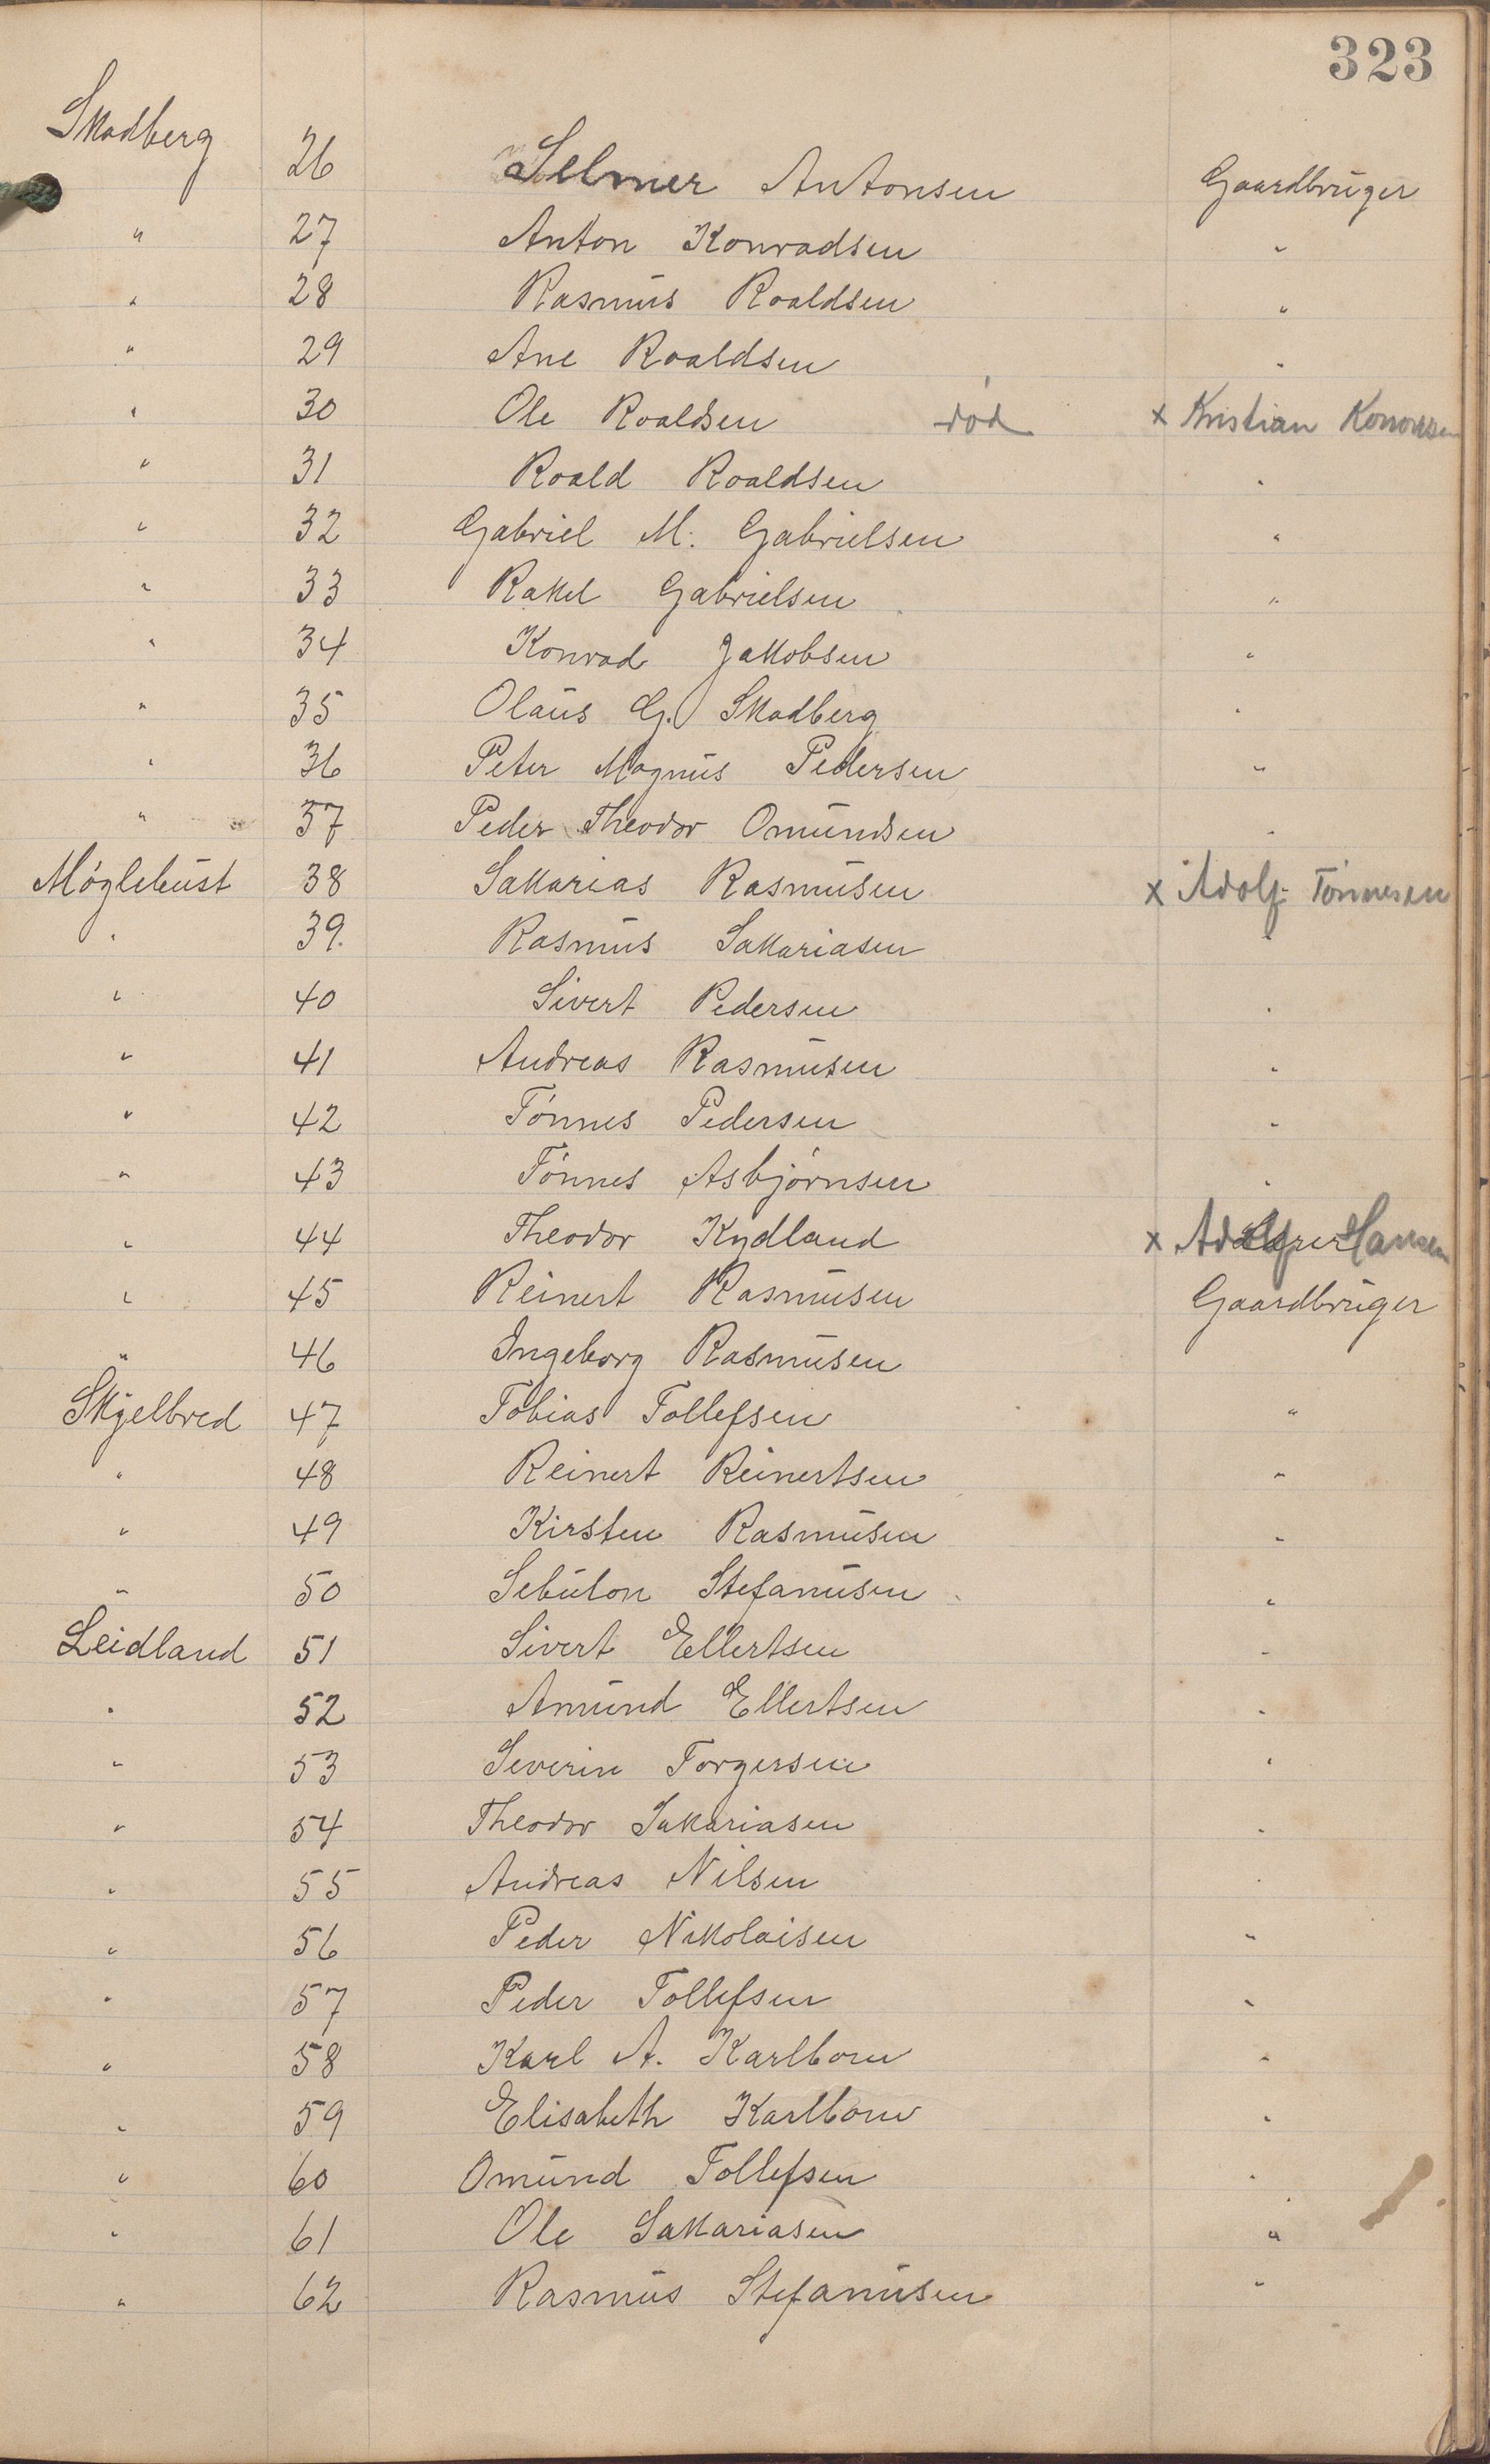 323
Skadberg 26 Selmer Antonsen Gaardbruger
" 27 Anton Konradsen "
" 28 Rasmus Roaldsen "
" 29 Ane Roaldsen "
" 30 Ole Roaldsen død x Kristian
" 31 Roald Roaldsen "
" 32 Gabriel M. Gabrielsen "
" 33 Rakel Gabrielsen "
" 34 Konrad Jakobsen "
" 35 Olaus G. Skadberg "
" 36 Peter Magnus Pedersen "
" 37 Peder Theodor Omundsen "
Møglebust 38 Sakarias Rasmusen x Adolf Tønnesen
" 39. Rasmus Sakariasen "
" 40 Sivert Pedersen "
" 41 Andreas Rasmusen "
" 42 Tønnes Pedersen "
" 43 Tønnes Asbjørnsen "
" 44 Theodor Kydland x Hansen
" 45 Reinert Rasmusen Gaardbruger
" 46 Ingeborg Rasmusen
Skjelbred 47 Tobias Tollefsen "
" 48 Reinert Reinertsen "
" 49 Kirsten Rasmusen "
" 50 Sebulon Stefanusen "
Leidland 51 Sivert Ellertsen "
" 52 Amund Ellertsen "
" 53 Severin Torgersen "
" 54 Theodor Sakariasen "
" 55 Andreas Nilsen "
" 56 Peder Nikolaisen "
" 57 Peder Tollefsen "
" 58 Karl A. Karlbom "
" 59 Elisabeth Karlbom "
" 60 Omund Tollefsen "
" 61 Ole Sakariasen "
" 62 Rasmus Stefanusen "